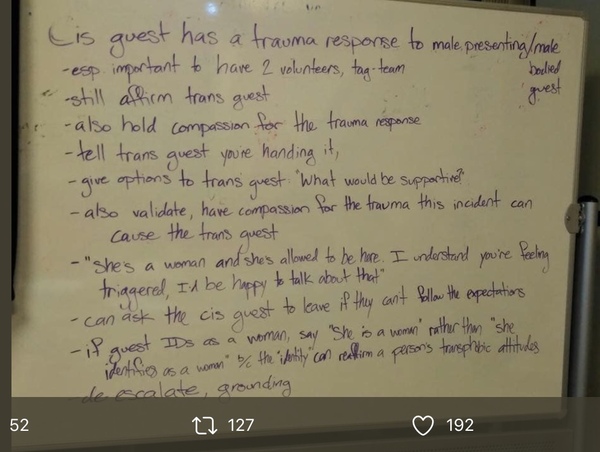 Cis guest has a trauma response to male presenting/male bodied guest
-esp important to have 2 volunteers, tag-team
-still affirm trans guest
-also hold compassion for the trauma response
-tell trans guest you're handing it,
-give options to trans guest "What would be supportive?"
-also validate, have compassion for the trauma this incident can
cause the trans guest
-"She's a woman and she's allowed to be here. I understand you're feeling
triggered, I'd be happy to talk about that"
-can ask the cis guest to leave if they can't follow the expectations
-if guest IDs as a woman, say "She is a woman" rather than "she
identifies as a woman" b/c the "identity" can reaffirm a person's transphobic attitudes
de escalate, grounding
52 127 192